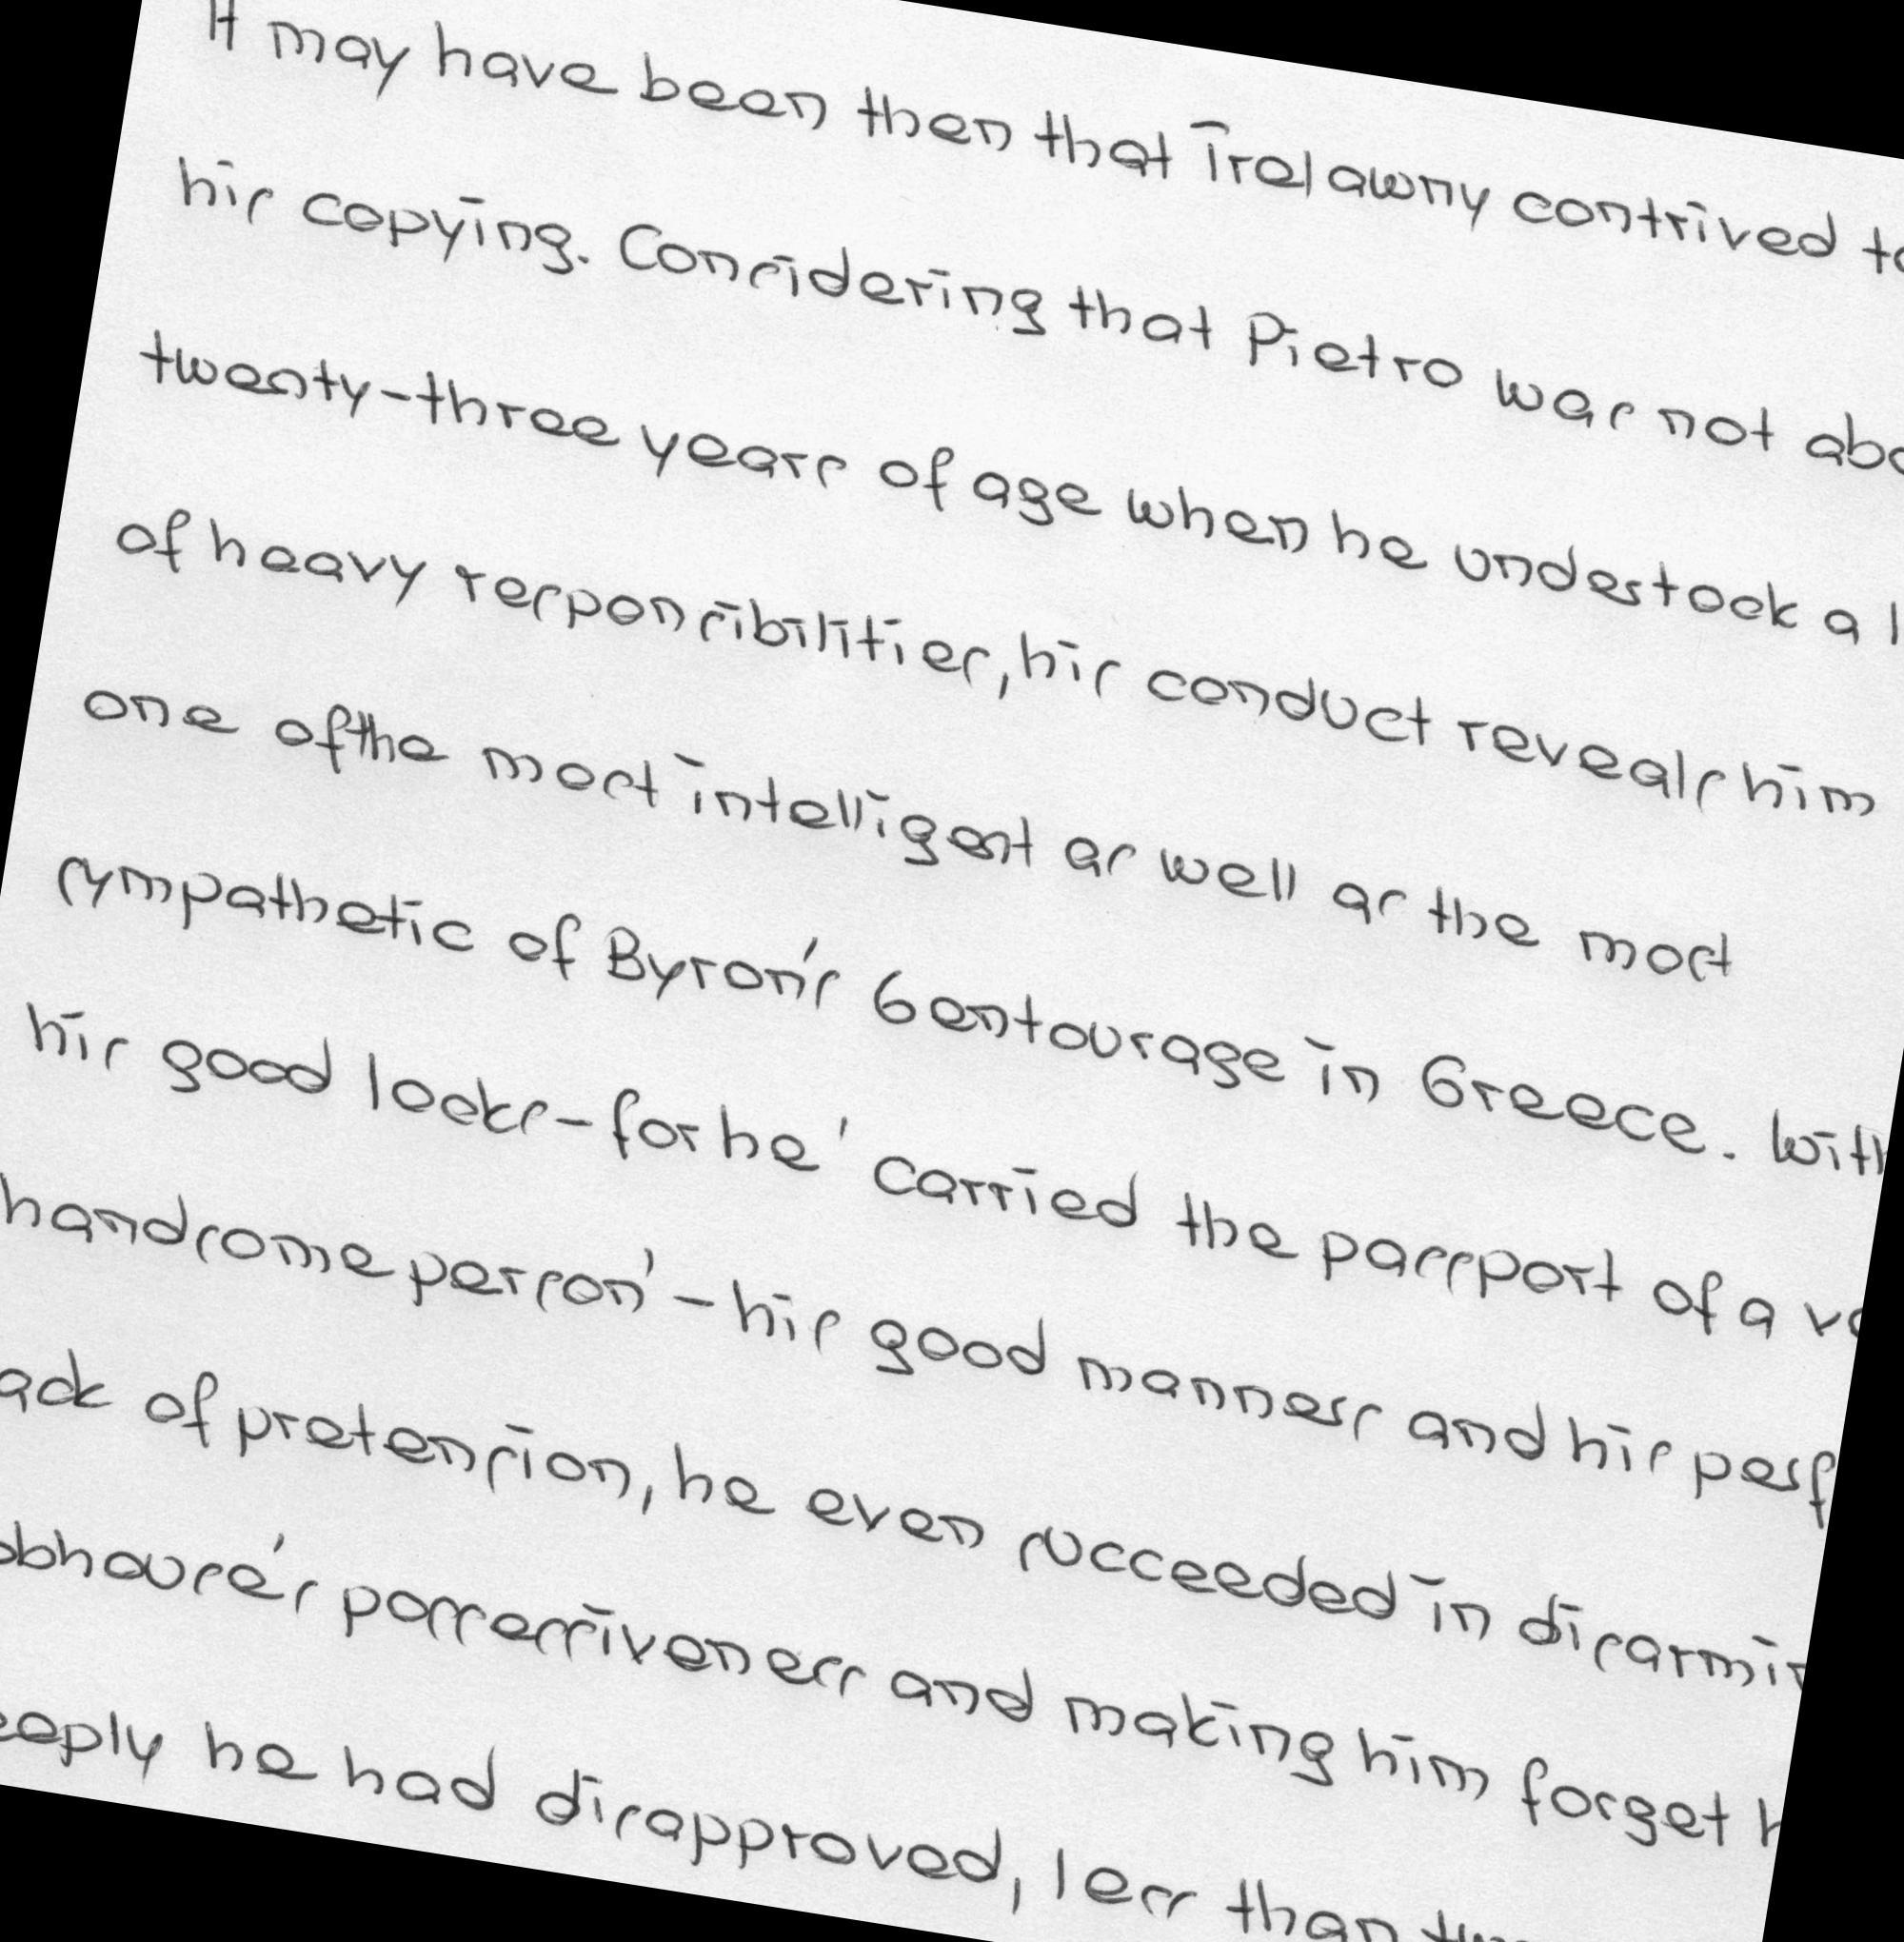 It may have been then that Trelawny contrived to
his copying. Considering that Pietro was not
twenty-three years of age when he undertook a
of heavy responsibilities, his conduct reveals him
one of the most intelligent as well as the most
sympathetic of Byron's Gentourage in Greece. With
his good looks - for he ' carried the passport of a
handsome person' - his good manners and his
of pretension, he even succeeded in
possessiveness and making him forget
he had disapproved, less than